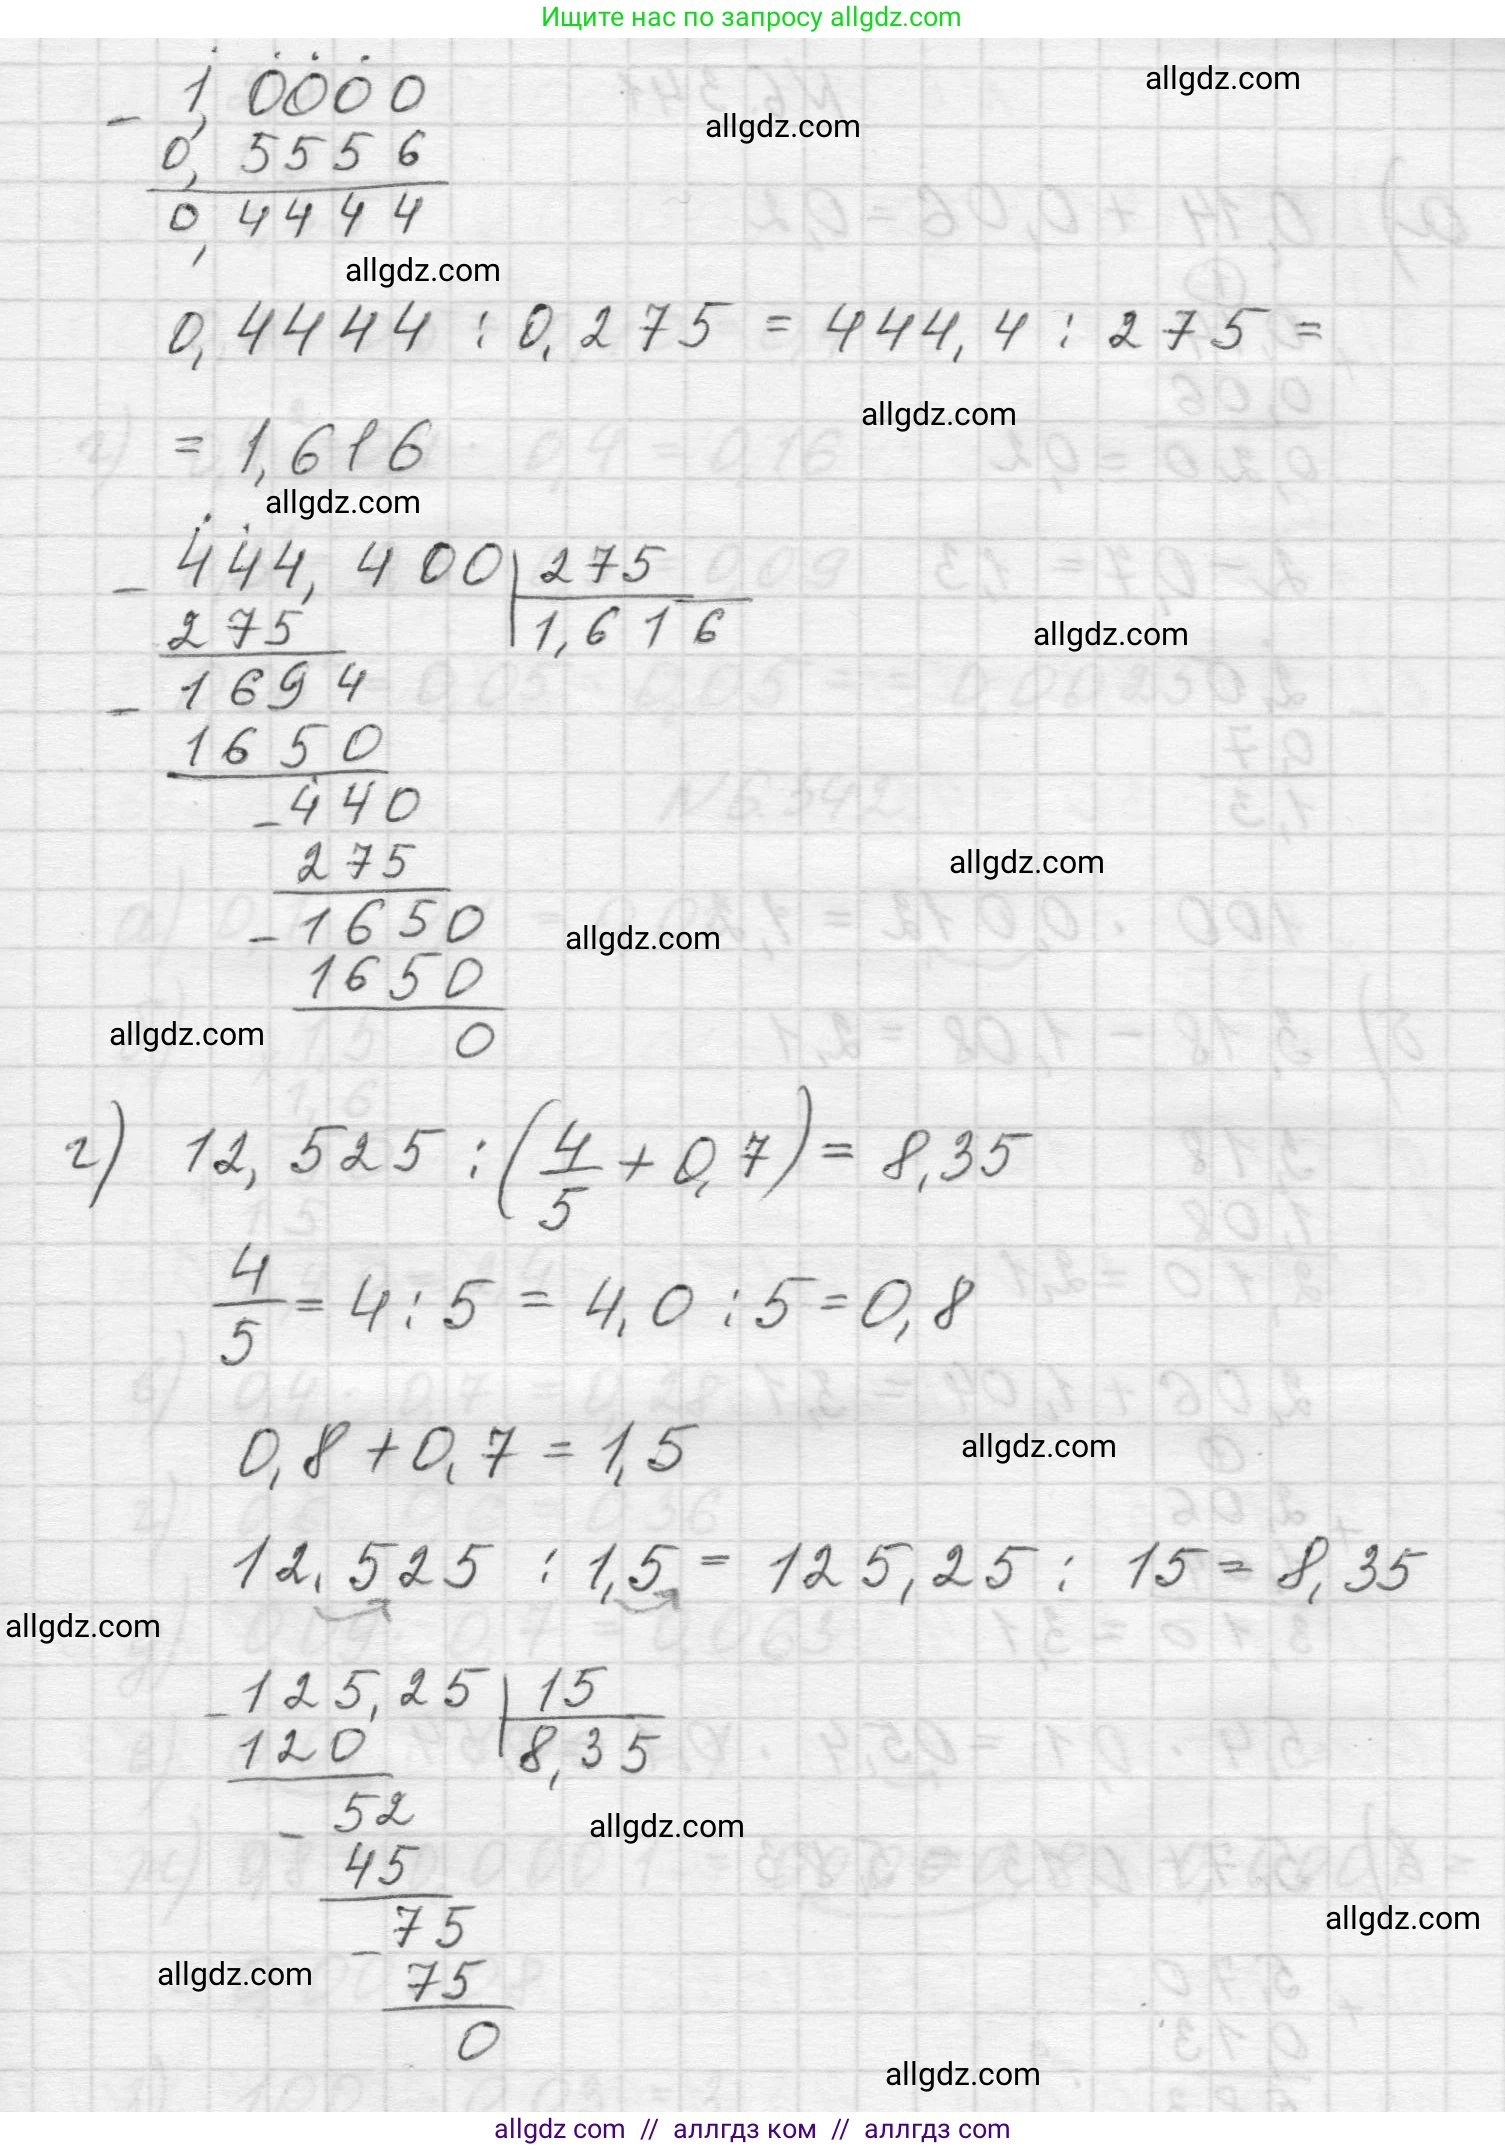 Ищите нас по запросу allgdz.com
allgdz.com
allgdz.com
- 1,0000
0,5556
0,4444
allgdz.com
0,4444 : 0,275 = 444,4 : 275 =
allgdz.com
= 1,616
allgdz.com
- 444,400 | 275
275 | 1,616
allgdz.com
- 1694
1650
- 440
275
allgdz.com
- 1650
allgdz.com
1650
allgdz.com
0
г) 12,525 : (4/5 + 0,7) = 8,35
4/5 = 4 : 5 = 4,0 : 5 = 0,8
0,8 + 0,7 = 1,5
allgdz.com
12,525 : 1,5 = 125,25 : 15 = 8,35
allgdz.com
- 125,25 | 15
120 | 8,35
- 52
allgdz.com
45
- 75
allgdz.com
75
allgdz.com
0
allgdz.com
allgdz com // аллгдз ком // аллгдз com